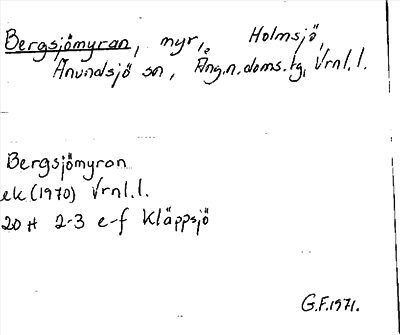 Bergsjömyran, myr, Holmsjö,
Anundsjö sn, Ång.n.doms.tg, Vrnl.l.
Bergsjömyran
ek (1970) Vrnl.l.
20 H 2-3 e-f Kläppsjö
G.F. 1971.